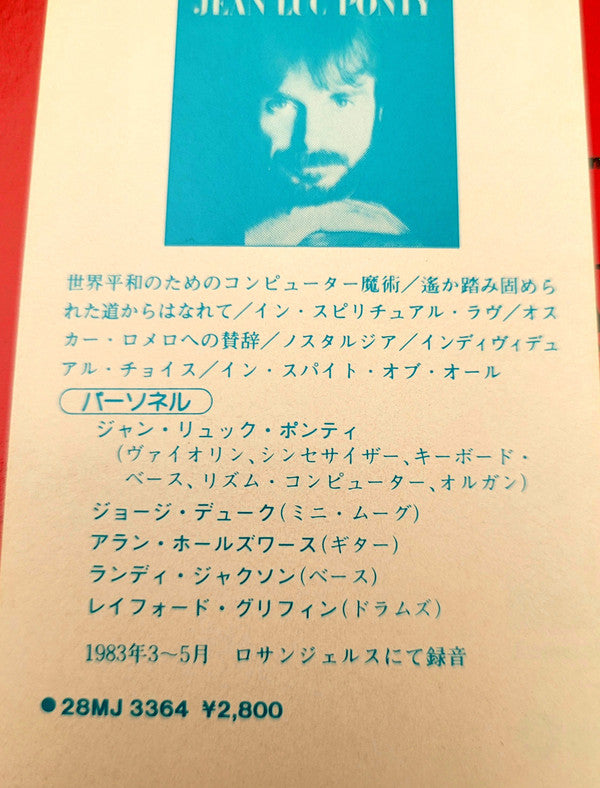 JEAN LUC PONTY
世界平和のためのコンピューター魔術／遙か踏み固めら
れた道からはなれて／イン・スピリチュアル・ラヴ／オス
カー・ロメロへの賛辞／ノスタルジア／インディヴィデュ
アル・チョイス／イン・スパイト・オブ・オール
パーソネル
ジャン・リュック・ポンティ
(ヴァイオリン、シンセサイザー、キーボード・
ベース、リズム・コンピューター、オルガン)
ジョージ・デューク(ミニ・ムーグ)
アラン・ホールズワース(ギター)
ランディ・ジャクソン(ベース)
レイフォード・グリフィン(ドラムズ)
1983年3〜5月 ロサンジェルスにて録音
●28MJ 3364 ¥2,800